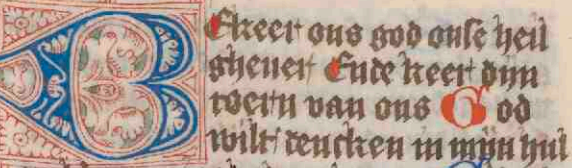 Bekeer ons god onse heil
gheuer Ende keer dijn
toern van ons God
wilt dencken in mijn hul